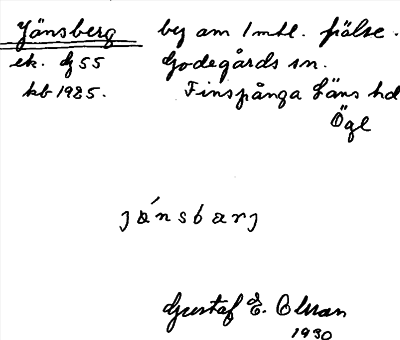 Jönsberg by om 1 mtl. frälse.
ek. G 55 Godegårds sn.
kb 1925. Finspånga Läns hd
Ögl
jȯ́nsbärj
Gustaf E. Olsson
1930